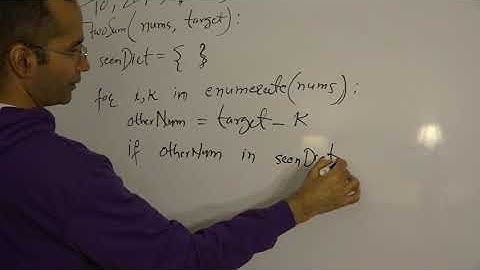 twoSum(nums, target):
seenDict = { }
for i,k in enumerate(nums):
otherNum = target - K
if otherNum in seenDict